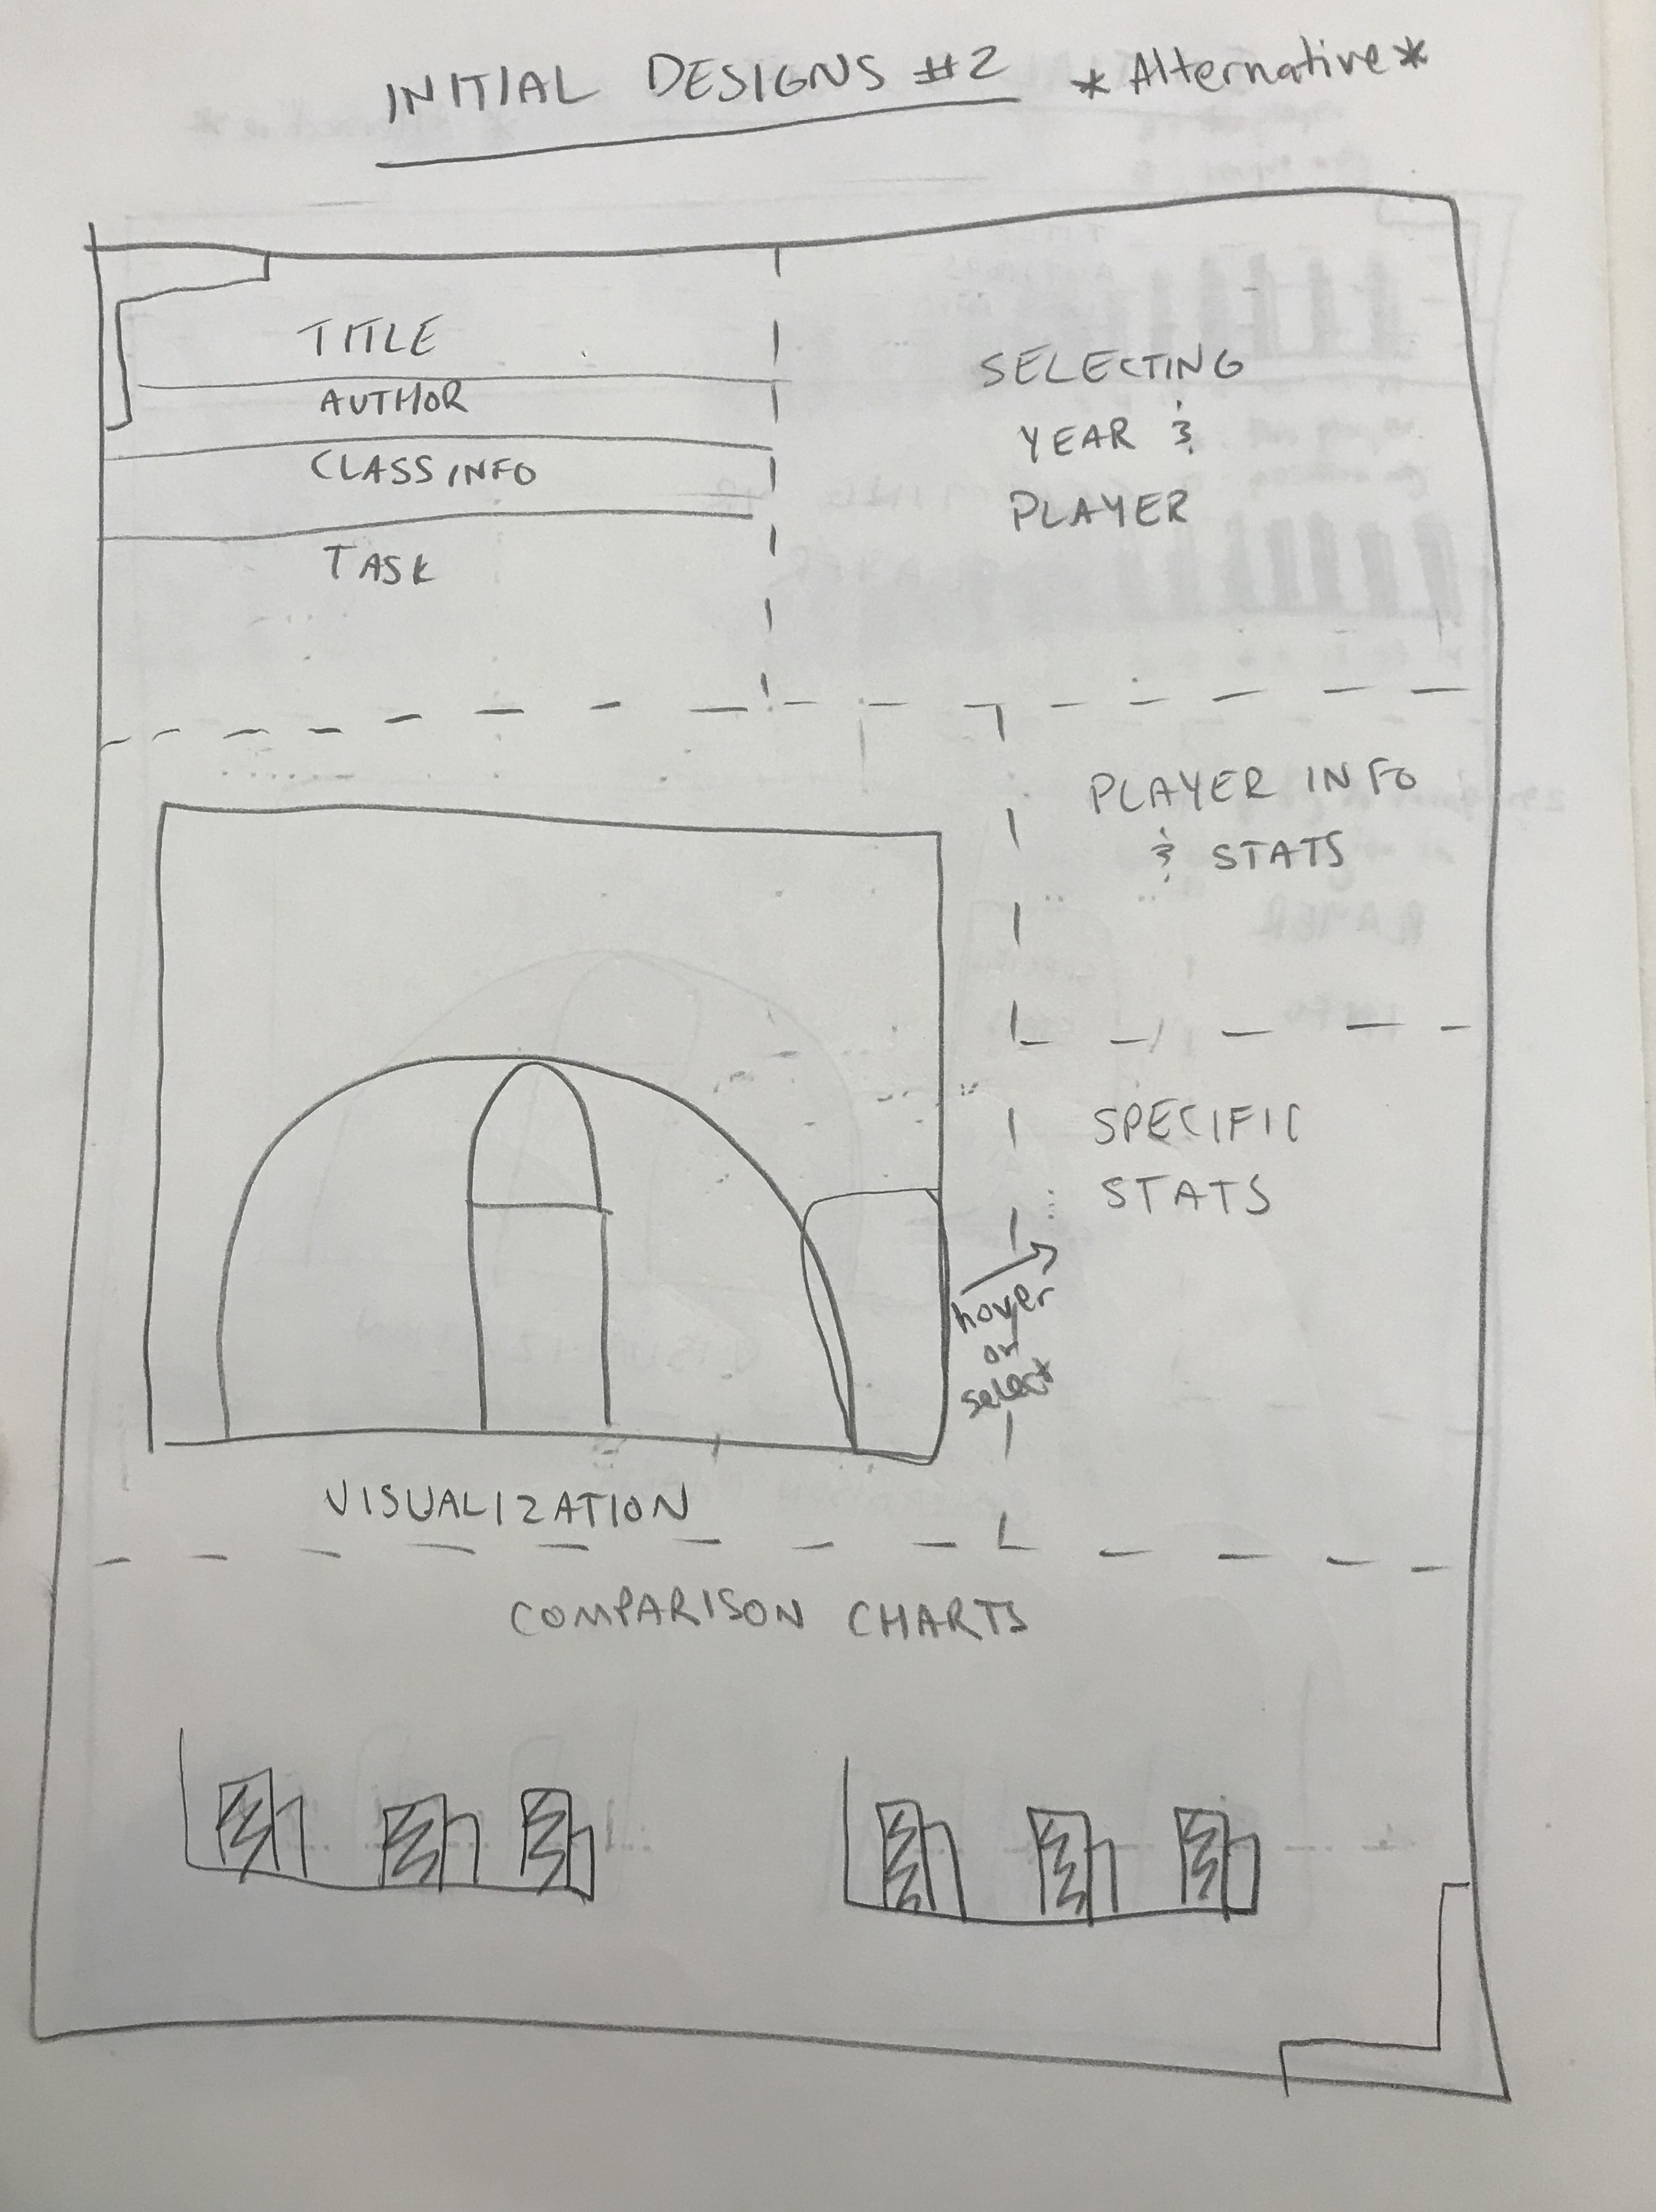 INITIAL DESIGNS #2 *Alternative*
TITLE
AUTHOR
CLASS INFO
TASK
SELECTING
YEAR &
PLAYER
PLAYER INFO
& STATS
SPECIFIC
STATS
hover
or
select
VISUALIZATION
COMPARISON CHARTS